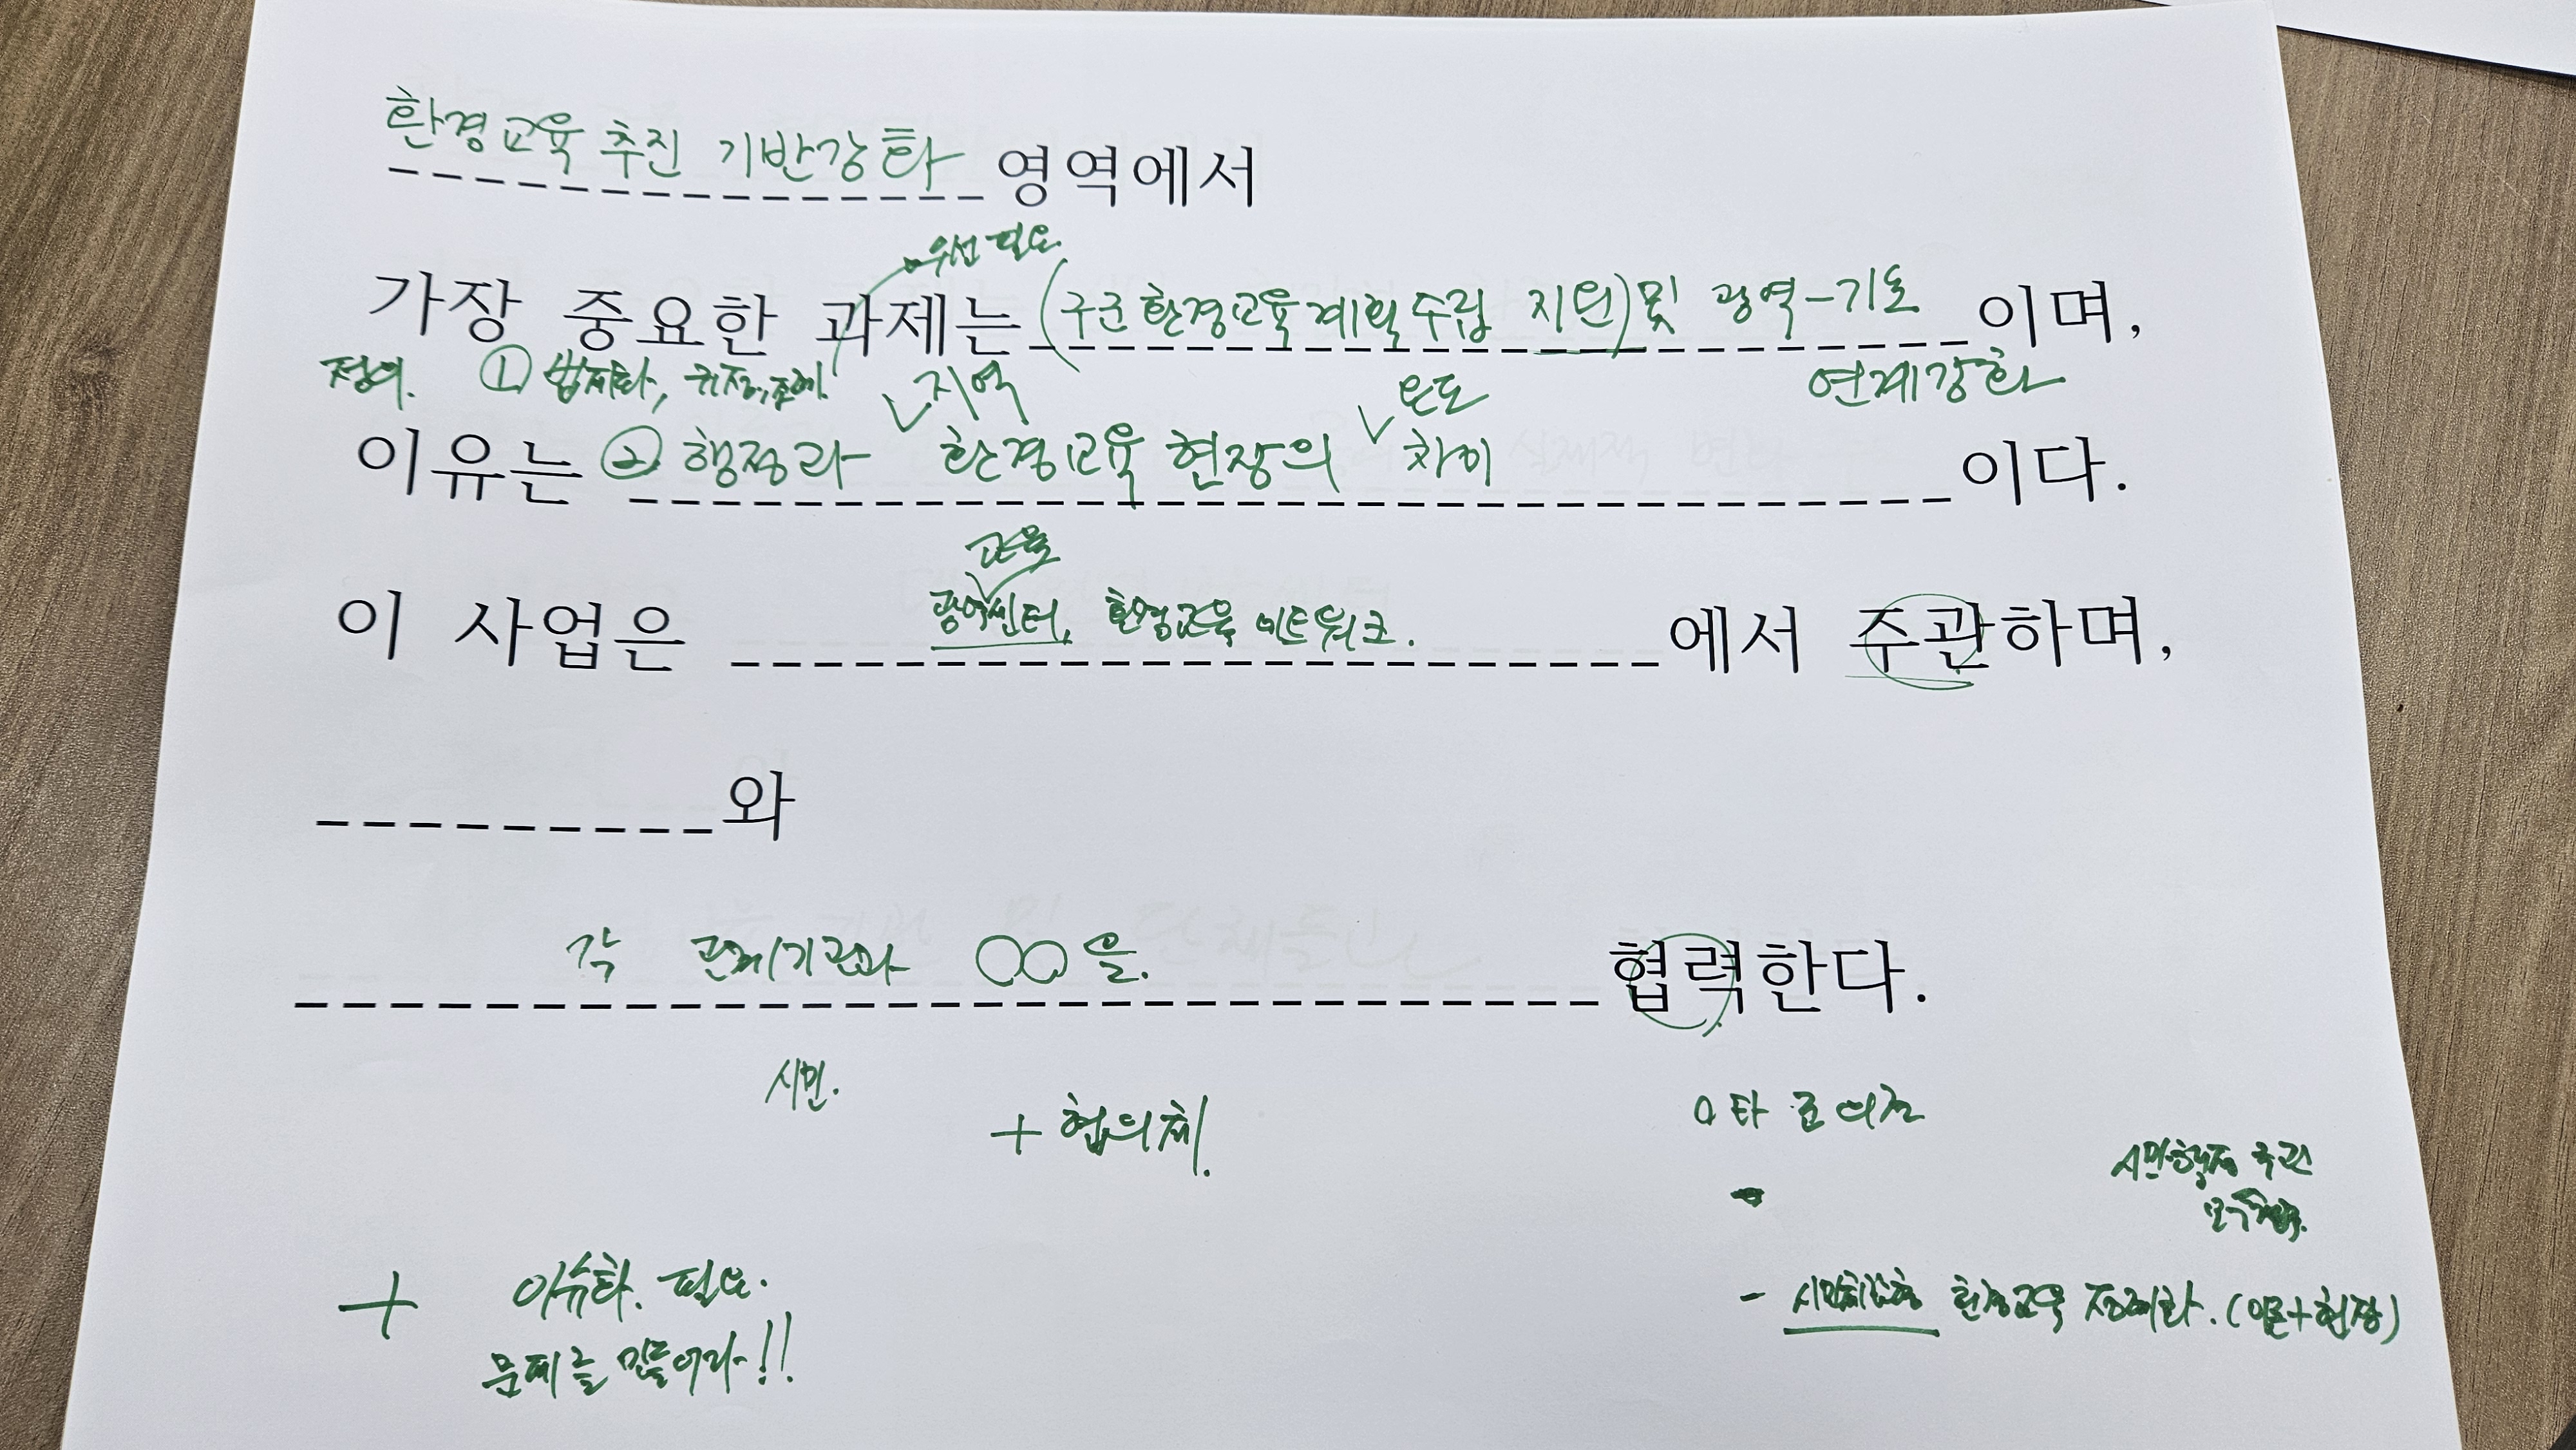 환경교육 추진 기반강화 영역에서
우선 필요.
가장 중요한 과제는 (구군 환경교육계획 수립 지원) 및 광역-기초 이며,
연계강화
정의. ① 법제화, 규정, 조례.
지역 온도
이유는 ② 행정과 환경교육 현장의 차이 이다.
교육
이 사업은 광역센터, 환경교육 네트워크. 에서 주관하며,
와
각 관계기관과 ○○을. 협력한다.
시민.
+ 협의체.
시민행정
+ 이슈화. 필요.
- 환경교육 (이론+현장)
문제를 만들어라!!